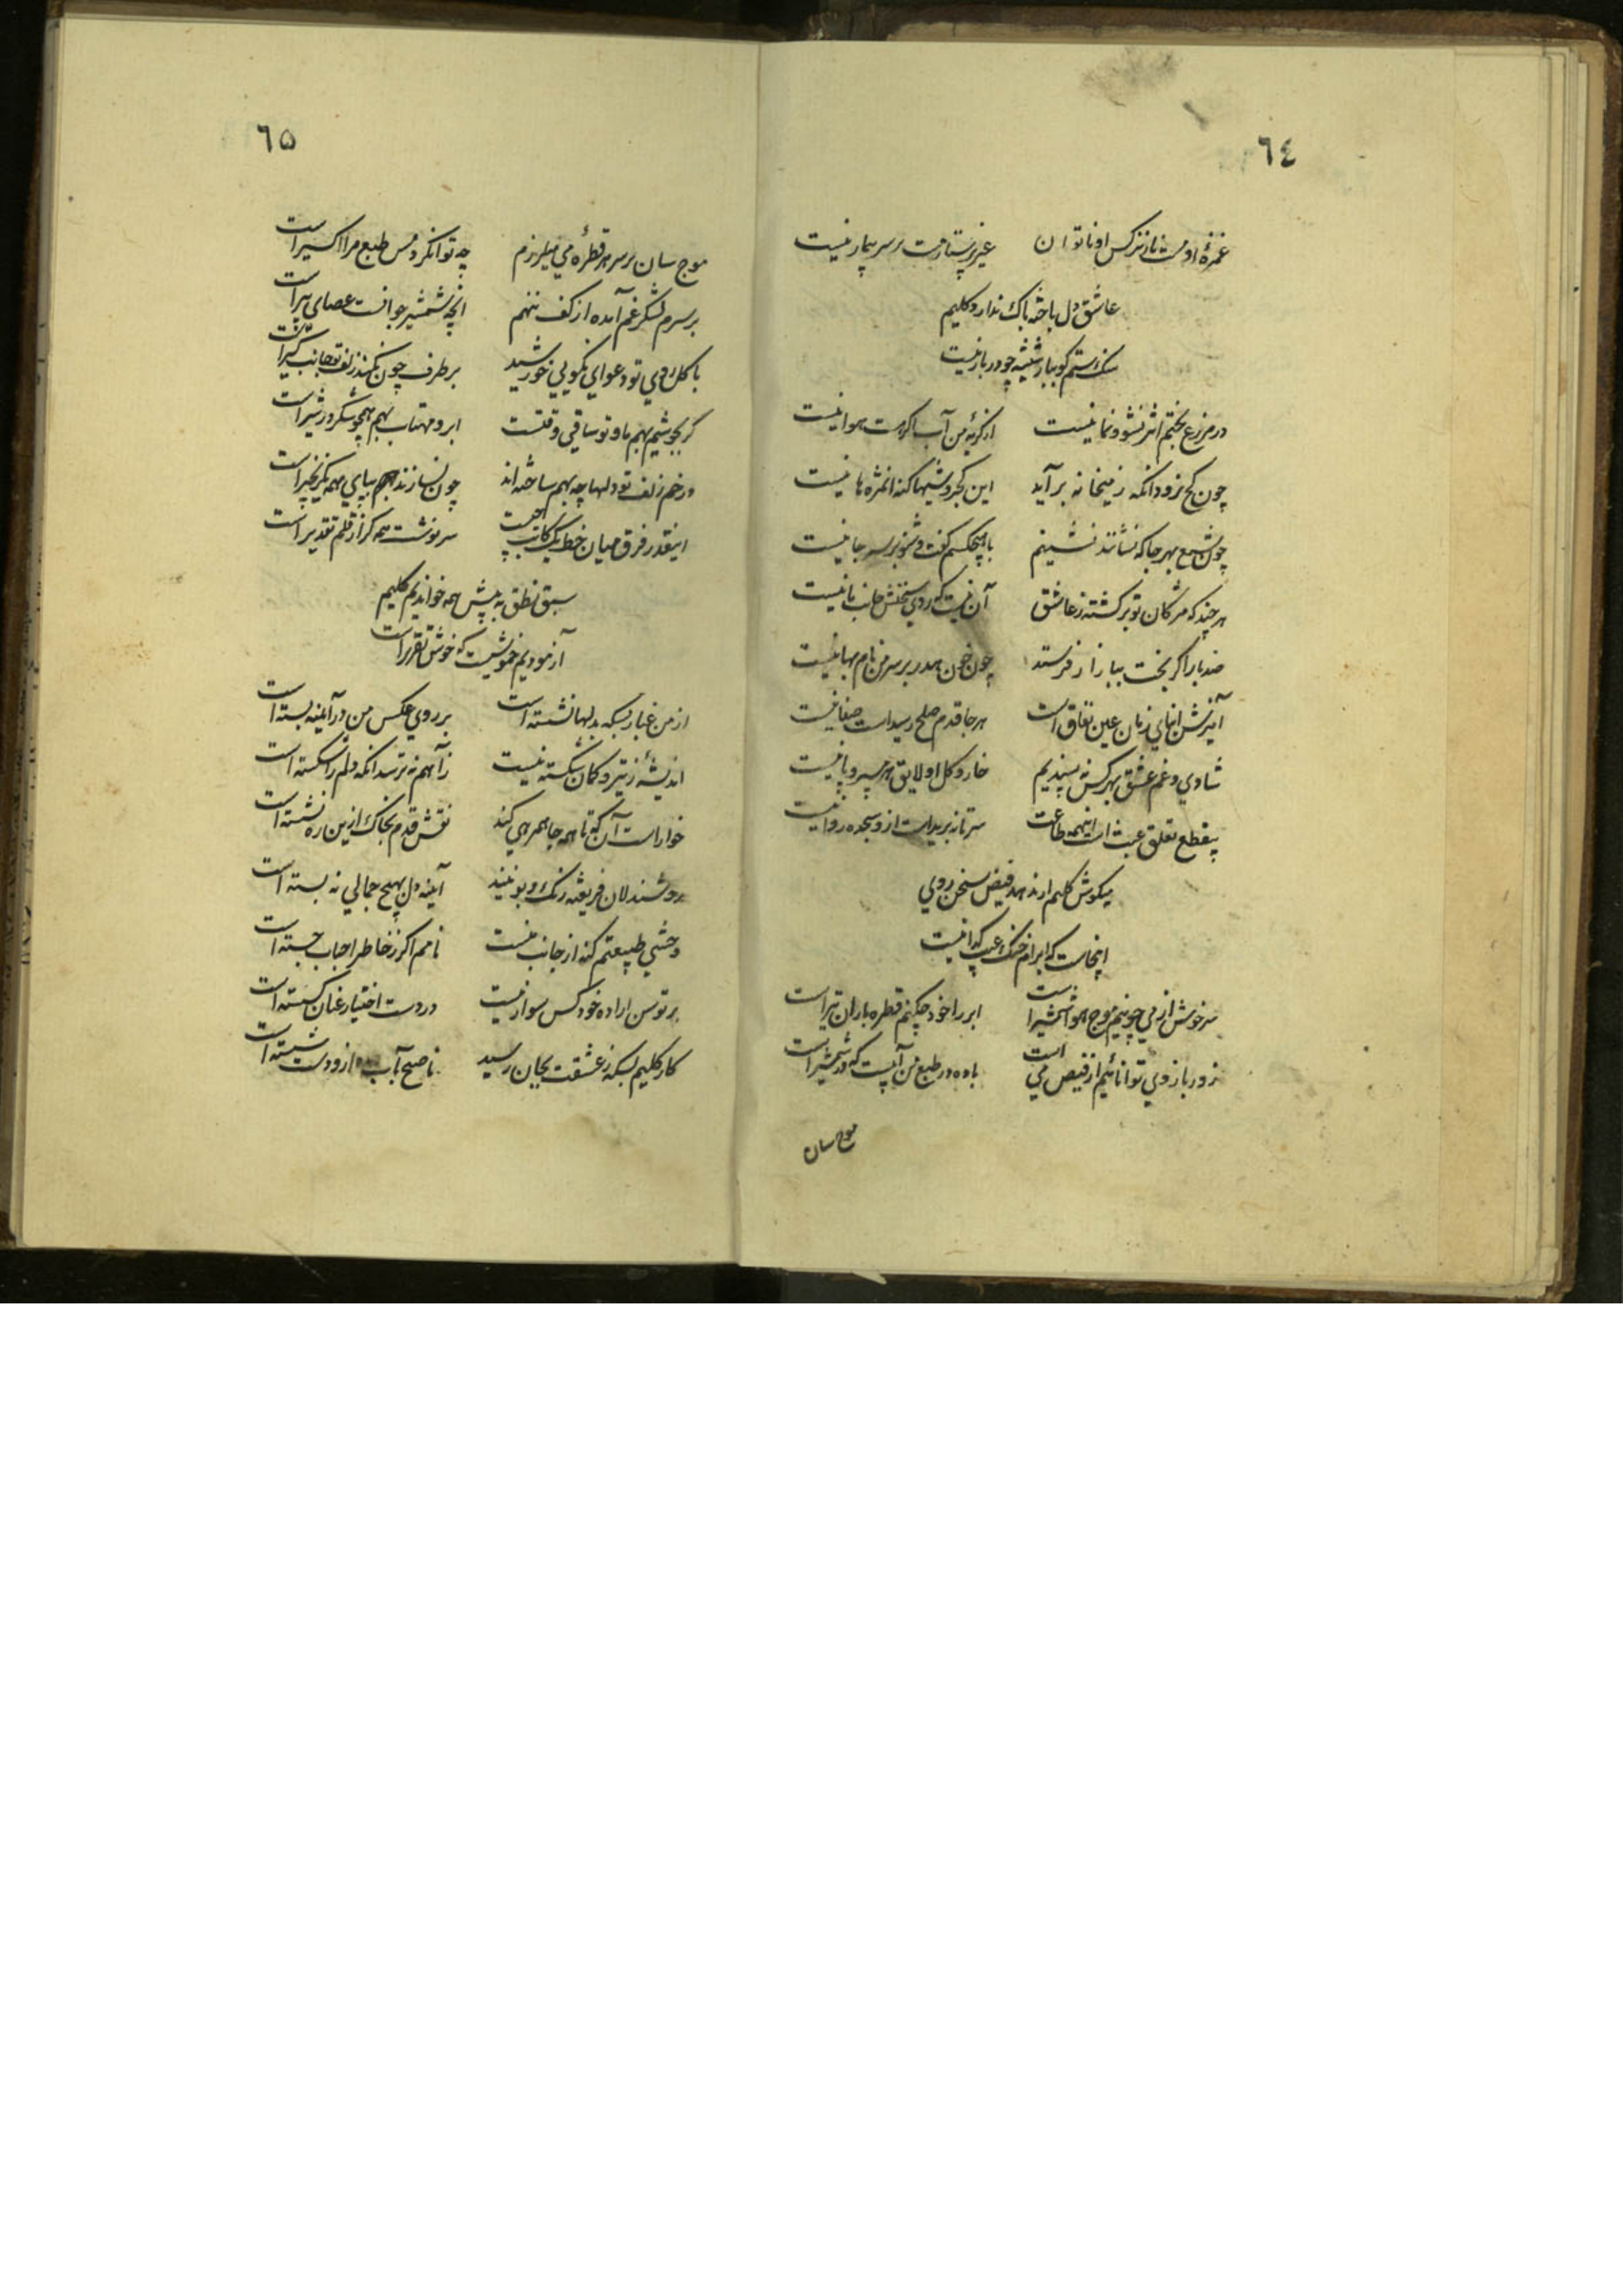 ٦٤
غمزهٔ او مست ناز نرگس او ناتوان غیر پرستار مست بر سر بیمار نیست
عاشق دل باخته باک ندارد کلیم
سنگ ستم گو ببار شیشه چو در بار نیست
در مزرع بختم اثر نشو و نما نیست از گریهٔ من آب اگر هست هوا نیست
چون کج نرود آنکه ز میخانه برآید این کجروشیها گنه انمژه ها نیست
چون شمع بهر جا که نشانند نشینم با هیچکسم گفت و شنو بر سر جا نیست
هر چند که مژگان تو برگشته ز عاشق آن نیست که روی سخنش جانب ما نیست
صد بار اگر بخت ببازار فرستد چون خون هدر بر سر من نام بها نیست
آمیزش ابنای زمان عین نفاق است هر جا قدم صلح رسید است صفا نیست
شادی و غم عشق بهر کس نه پسندیم خار و گل او لایق هر بی سر و پا نیست
بیقطع تعلق عبث است اینهمه طاعت سر تا نبرید است ازو سجده روا نیست
میکوش کلیم ار ندهد فیض سخن روی
اینجاست که ابرام خنک عیب گدا نیست
سرخوش از می چو نیم موج هوا شمشیر است ابر را خود چکنم قطره باران تیر است
زور بازوی توانائیم از فیض می است باده در طبع من آبیست که در شمشیر است
موج سان
٦۵
موج سان بر سر هر قطرهٔ می میلرزم چه توانکرد مس طبع مرا اکسیر است
بر سرم لشکر غم آمده از کف ننهم انچه شمشیر جوانست عصای پیر است
با گل روی تو دعوای نکویی خورشید برطرف چون نکند زلف تو جانب گیر است
گر بجوشیم بهم ما و تو ساقی وقتست ابر و مهتاب بهم همچو شکر در شیر است
در خم زلف تو دلها چه بهم ساخته اند چون نسازند بهم پای همه یک زنجیر است
اینقدر فرق میان خط یک کاتب چیست سرنوشت همه گر از قلم تقدیر است
سبق نطق به پیش همه خواندیم کلیم
آزمودیم خموشیست که خوش تقریر است
از من غبار بسکه بدلها نشسته است بر روی عکس من در آئینه بسته است
اندیشهٔ ز تیر و کمان شکسته نیست ز آهم نه ترسد انکه دلم را شکسته است
خوار است آن که تا همه جا همرهی کند نقش قدم بخاک ازین ره نشسته است
روشندلان فریفته رنگ و بو نیند آئینه دل بهیچ جمالی نه بسته است
وحشی طبیعتم گنه از جانب منست نامم اگر ز خاطر احباب جسته است
بر توسن اراده خود کس سوار نیست در دست اختیار عنان گسسته است
کار کلیم بسکه ز عشقت بجان رسید ناصح آب ازو دست شسته است